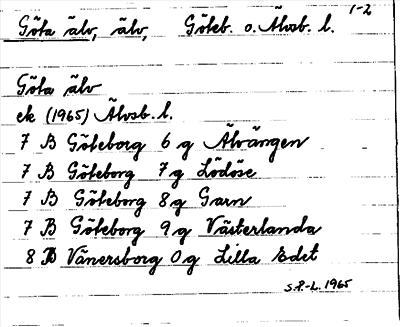 1-2
Göta älv, älv, Göteb. o. Älvsb. l.
Göta älv
ek (1965) Älvsb. l.
7 B Göteborg 6 g Älvängen
7 B Göteborg 7 g Lödöse
7 B Göteborg 8 g Garn
7 B Göteborg 9 g Västerlanda
8 B Vänersborg 0 g Lilla Edet
S.P.-L. 1965